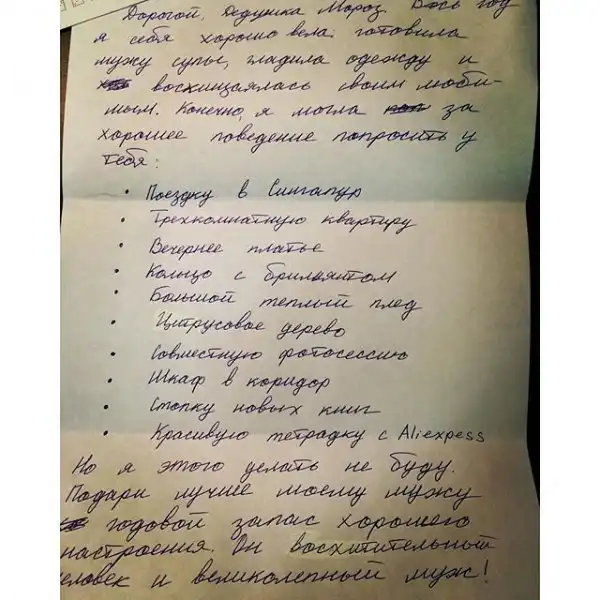 Дорогой, Дедушка Мороз. Весь год
я себя хорошо вела: готовила
мужу супы, гладила одежду и
восхищаялась своим люби-
мым. Конечно, я могла за
хорошее поведение попросить у
тебя:
• Поездку в Сингапур
• Трехкомнатную квартиру
• Вечернее платье
• Кольцо с бриллиантом
• Большой теплый плед
• Цитрусовое дерево
• Совместную фотосессию
• Шкаф в коридор
• Стопку новых книг
• Красивую тетрадку с Aliexpess
Но я этого делать не буду.
Подари лучше моему мужу
годовой запас хорошего
настроения. Он восхитительный
человек и великолепный муж!